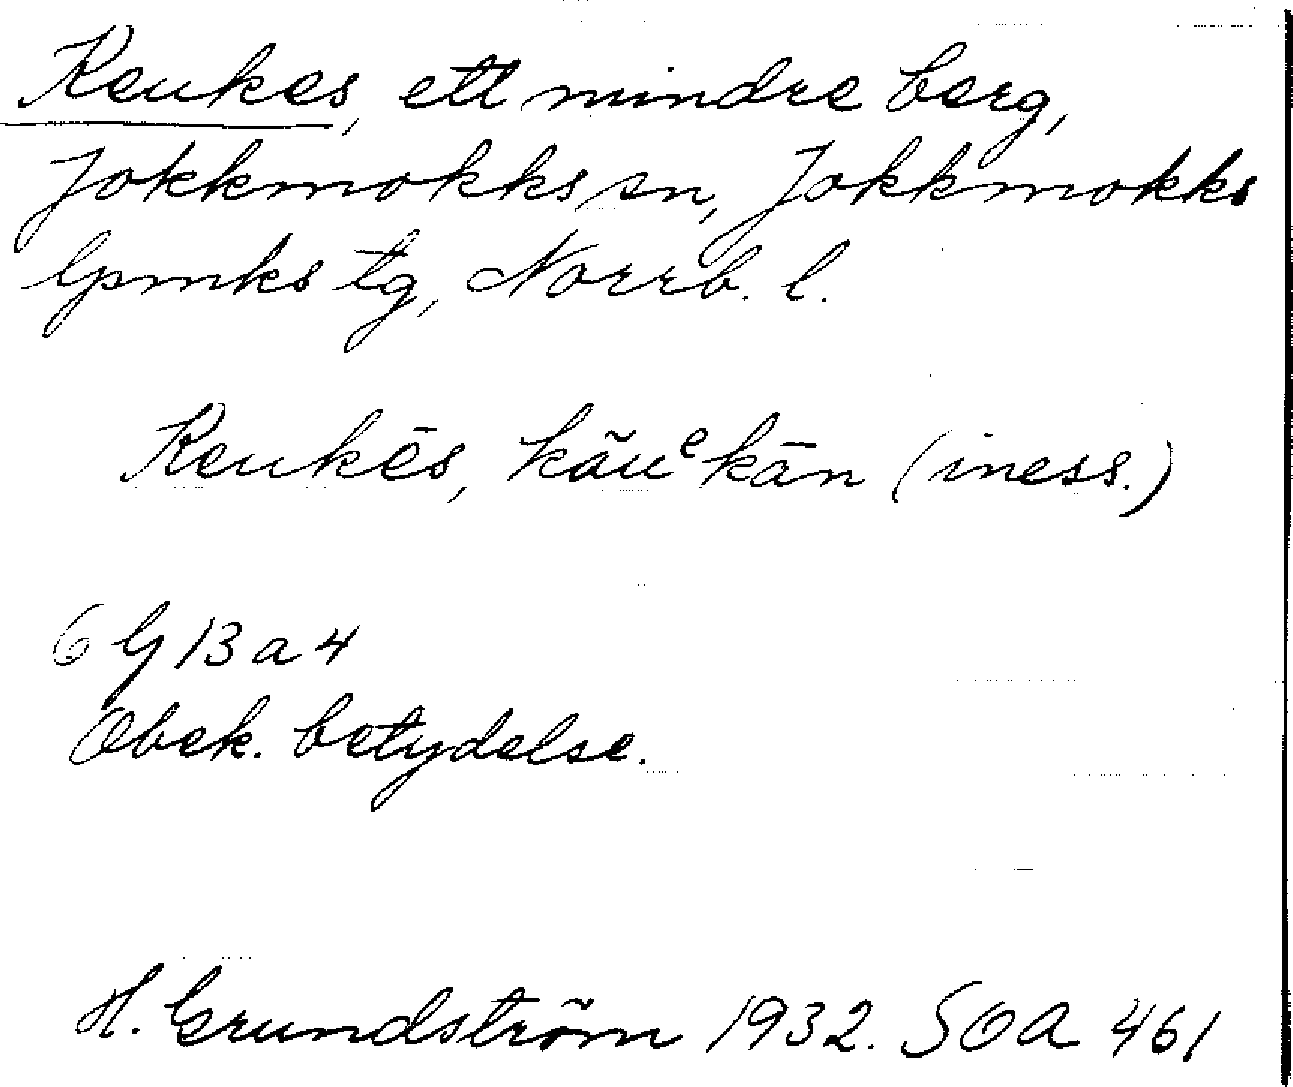 Keukes, ett mindre berg,
Jokkmokks sn, Jokkmokks
lpmks tg, Norrb. l.
Keukēs, kãuᵉkān (iness.)
6 G 13 a 4
Obek. betydelse.
H. Grundström 1932. SOA 461